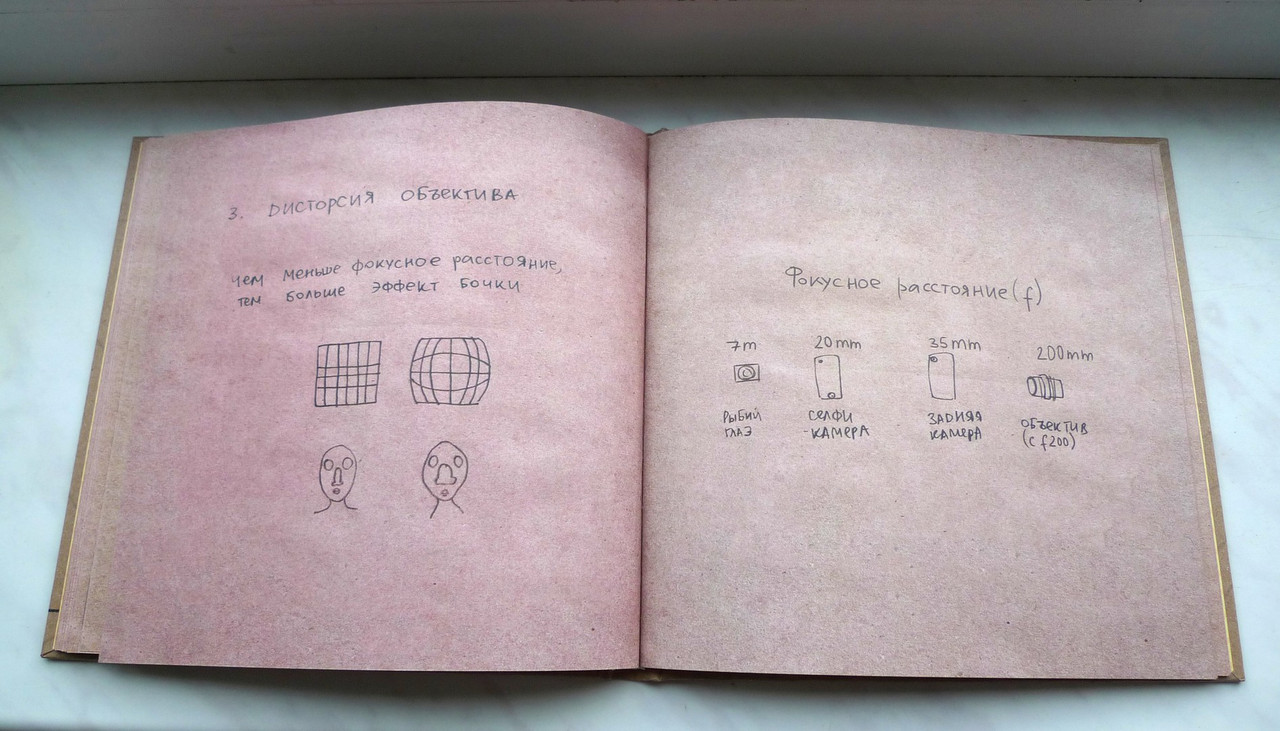 3. ДИСТОРСИЯ ОБЪЕКТИВА
чем меньше фокусное расстояние,
тем больше эффект бочки
Фокусное расстояние (f)
7m
20mm
35mm
200mm
РЫБИЙ
ГЛАЗ
СЕЛФИ
-КАМЕРА
ЗАДНЯЯ
КАМЕРА
ОБЪЕКТИВ
(с f200)